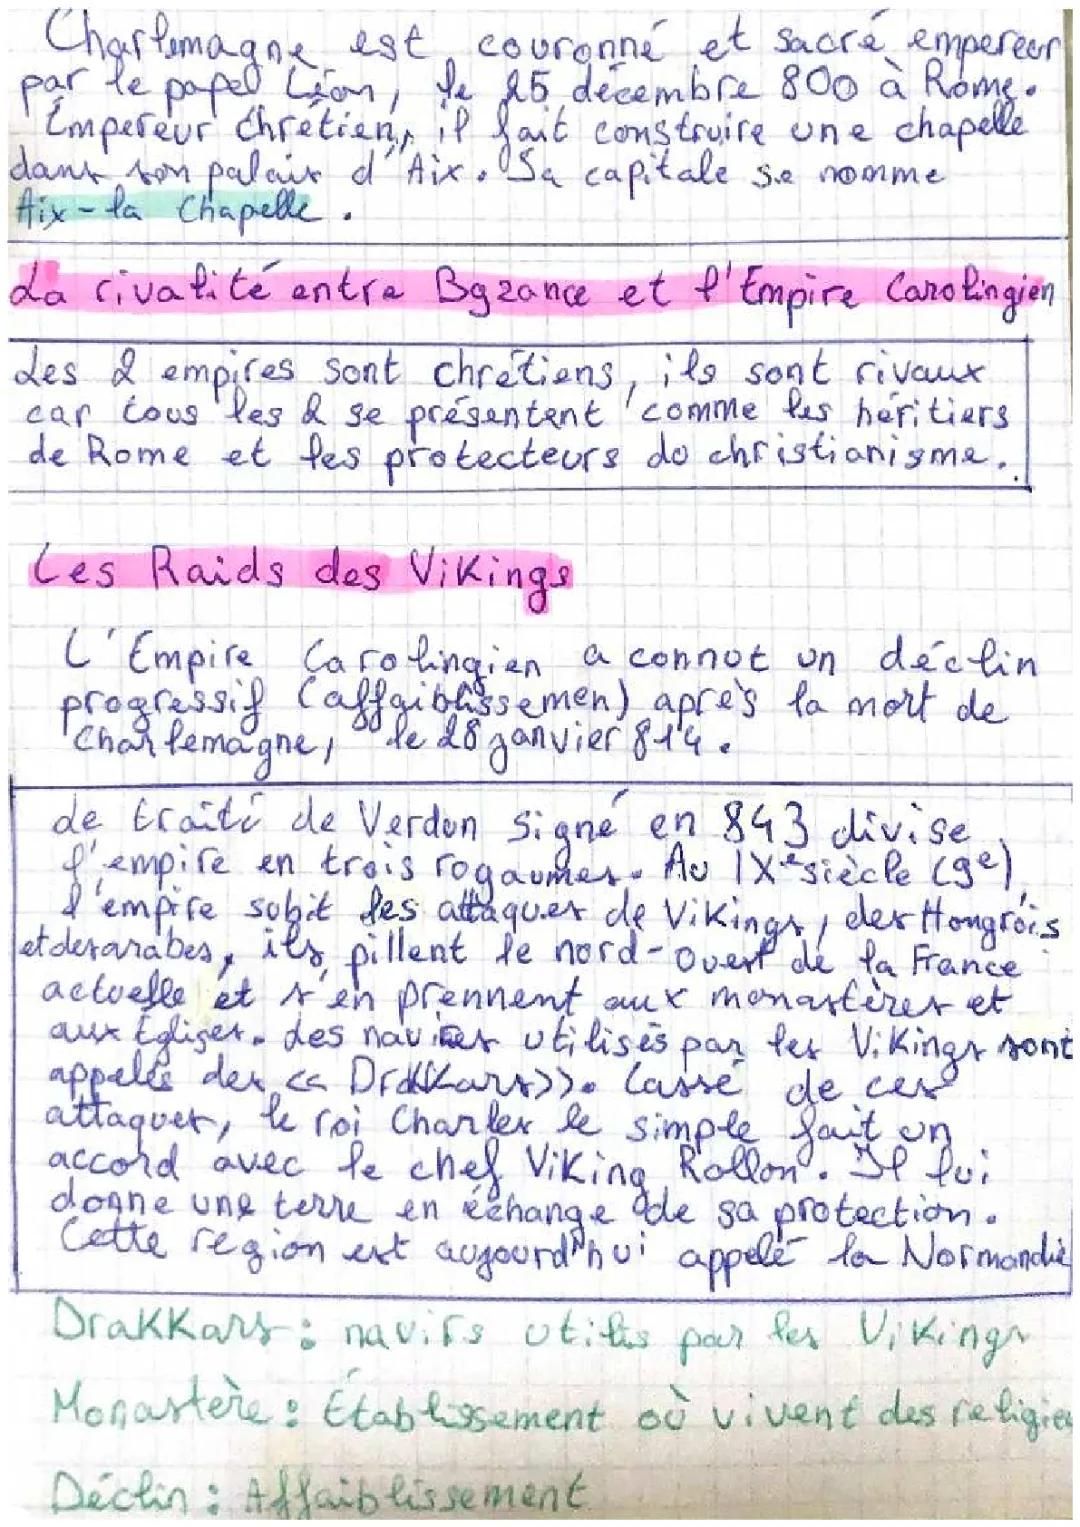 Charlemagne est couronné et sacré empereur
par le papel Léon, le 25 décembre 800 à Rome.
Empereur chrétien, il fait construire une chapelle
dans son palais d'Aix. Sa capitale se nomme
Aix-la Chapelle.
La rivalité entre Byzance et l'Empire Carolingien
Les 2 empires sont chrétiens, ils sont rivaux
car tous les 2 se présentent comme les héritiers
de Rome et les protecteurs du christianisme.
Les Raids des Vikings
L'Empire Carolingien a connut un déclin
progressif (affaiblissemen) après la mort de
Charlemagne, le 28 janvier 814.
Le traité de Verdun signé en 843 divise
l'empire en trois royaumes. Au IXe siècle (9e)
l'empire subit les attaques de Vikings, des Hongrois
et des arabes, ils pillent le nord-ouest de la France
actuelle et s'en prennent aux monastères et
aux Églises. Les navires utilisés par les Vikings sont
appelés des << Drakkars>>. Lassé de ces
attaques, le roi Charles le simple fait un
accord avec le chef Viking Rollon. Il lui
donne une terre en échange de sa protection.
Cette région est aujourd'hui appelé la Normandie
Drakkars : navirs utilis par les Vikings
Monastère : Établissement où vivent des religieu
Déclin : Affaiblissement